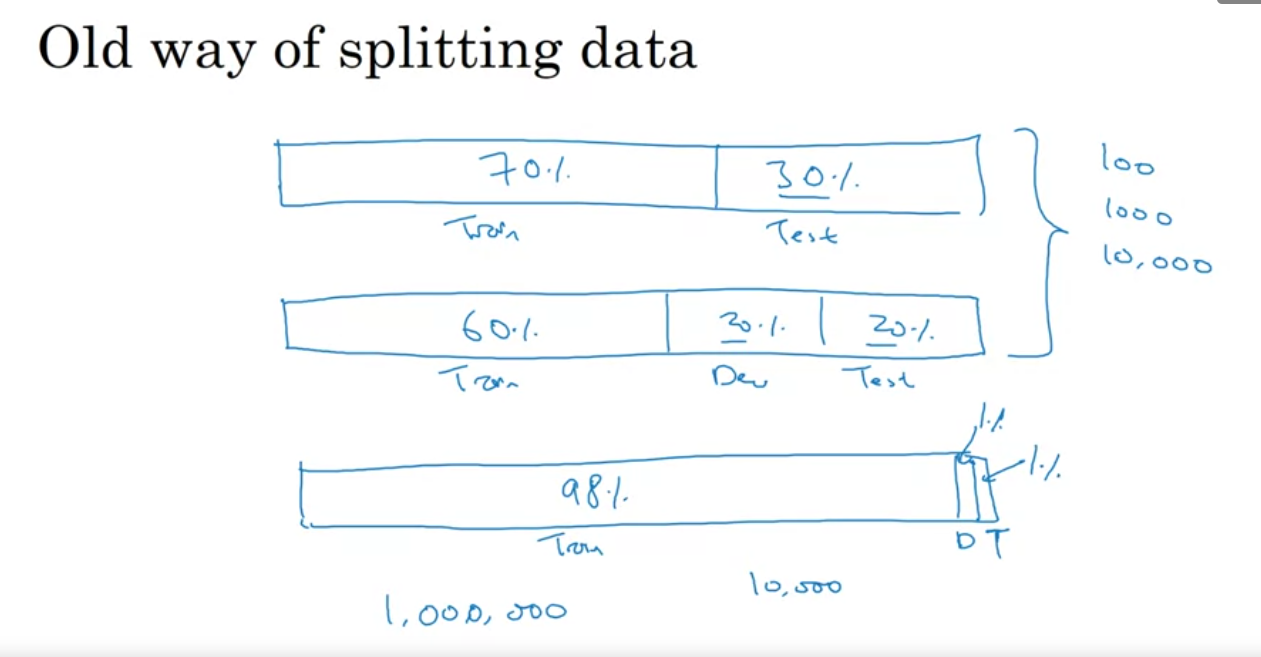 Old way of splitting data
70% 30%
Train Test
100
1000
10,000
60% 20% 20%
Train Dev Test
1% 1%
98%
Train D T
10,000
1,000,000